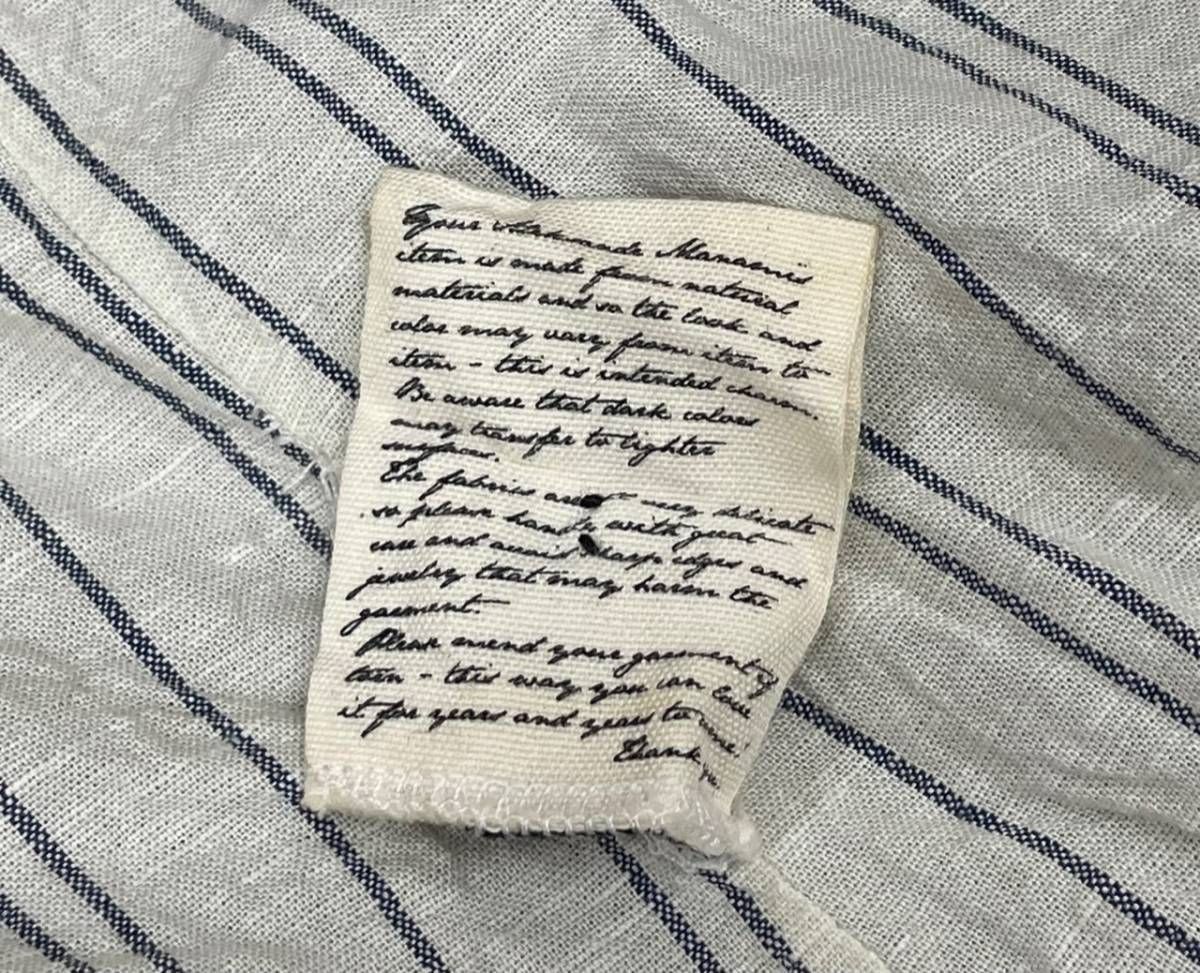 Your Mes Demoiselles
item is made from natural
materials and so the look and
color may vary from item to
item - this is intended charm.
Be aware that dark colors
may transfer to lighter
surfaces.
The fabrics are very delicate
so please handle with great
care and avoid sharp edges and
jewelry that may harm the
garment.
Please mend your garment if
torn - this way you can love
it for years and years to come!
Thank you